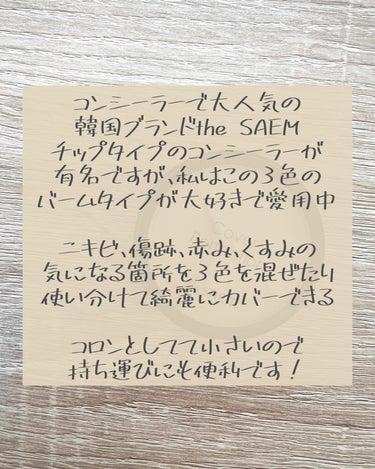 コンシーラーで大人気の
韓国ブランドthe SAEM
チップタイプのコンシーラーが
有名ですが、私はこの3色の
バームタイプが大好きで愛用中
ニキビ、傷跡、赤み、くすみの
気になる箇所を3色を混ぜたり
使い分けて綺麗にカバーできる
コロンとしてて小さいので
持ち運びにも便利です！